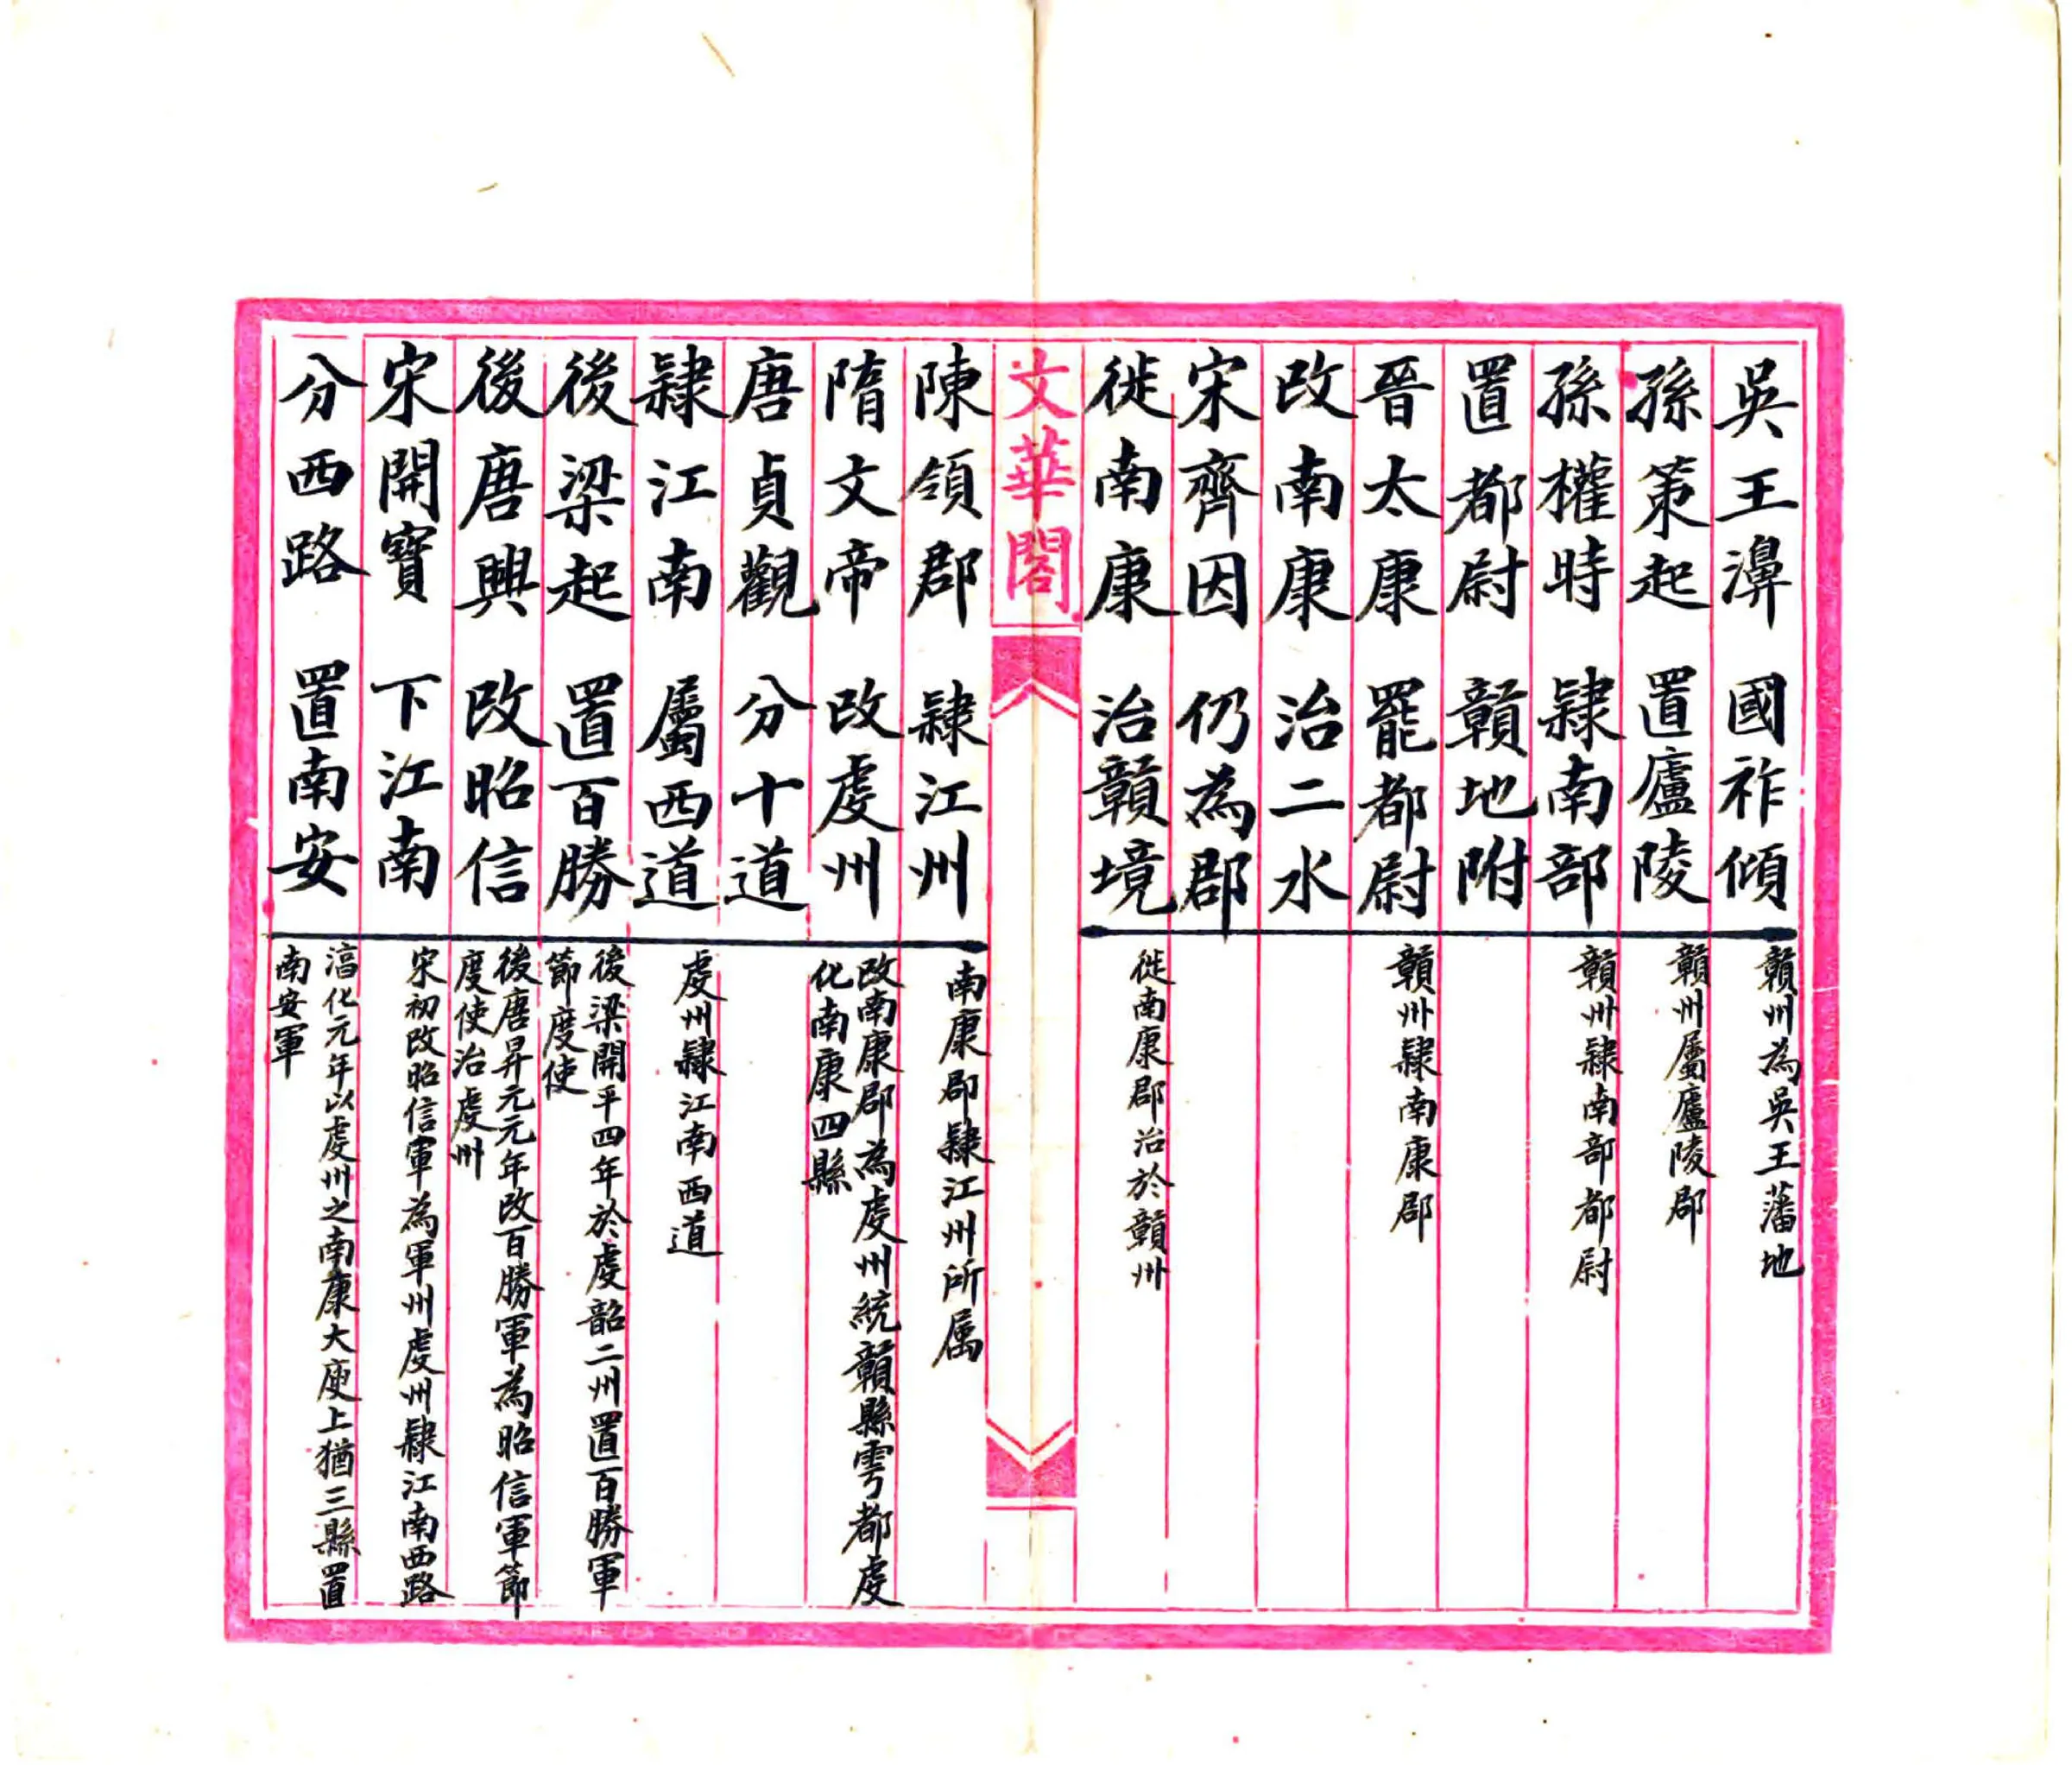 吳王濞 國祚傾
贛州為吳王藩地
孫策起 置廬陵
贛州屬廬陵郡
孫權時 隸南部
贛州隸南部都尉
置都尉 贛地附
晉太康 罷都尉
贛州隸南康郡
改南康 治二水
宋齊因 仍為郡
徙南康 治贛境
徙南康郡治於贛州
文華閣
陳領郡 隸江州
南康郡隸江州所属
隋文帝 改虔州
改南康郡為虔州統贛縣雩都虔
化南康四縣
唐貞觀 分十道
隸江南 屬西道
虔州隸江南西道
後梁起 置百勝
後梁開平四年於虔韶二州置百勝軍
節度使
後唐興 改昭信
後唐昇元元年改百勝軍為昭信軍節
度使治虔州
宋開寶 下江南
宋初改昭信軍為軍州虔州隸江南西路
分西路 置南安
淳化元年以虔州之南康大庾上猶三縣置
南安軍